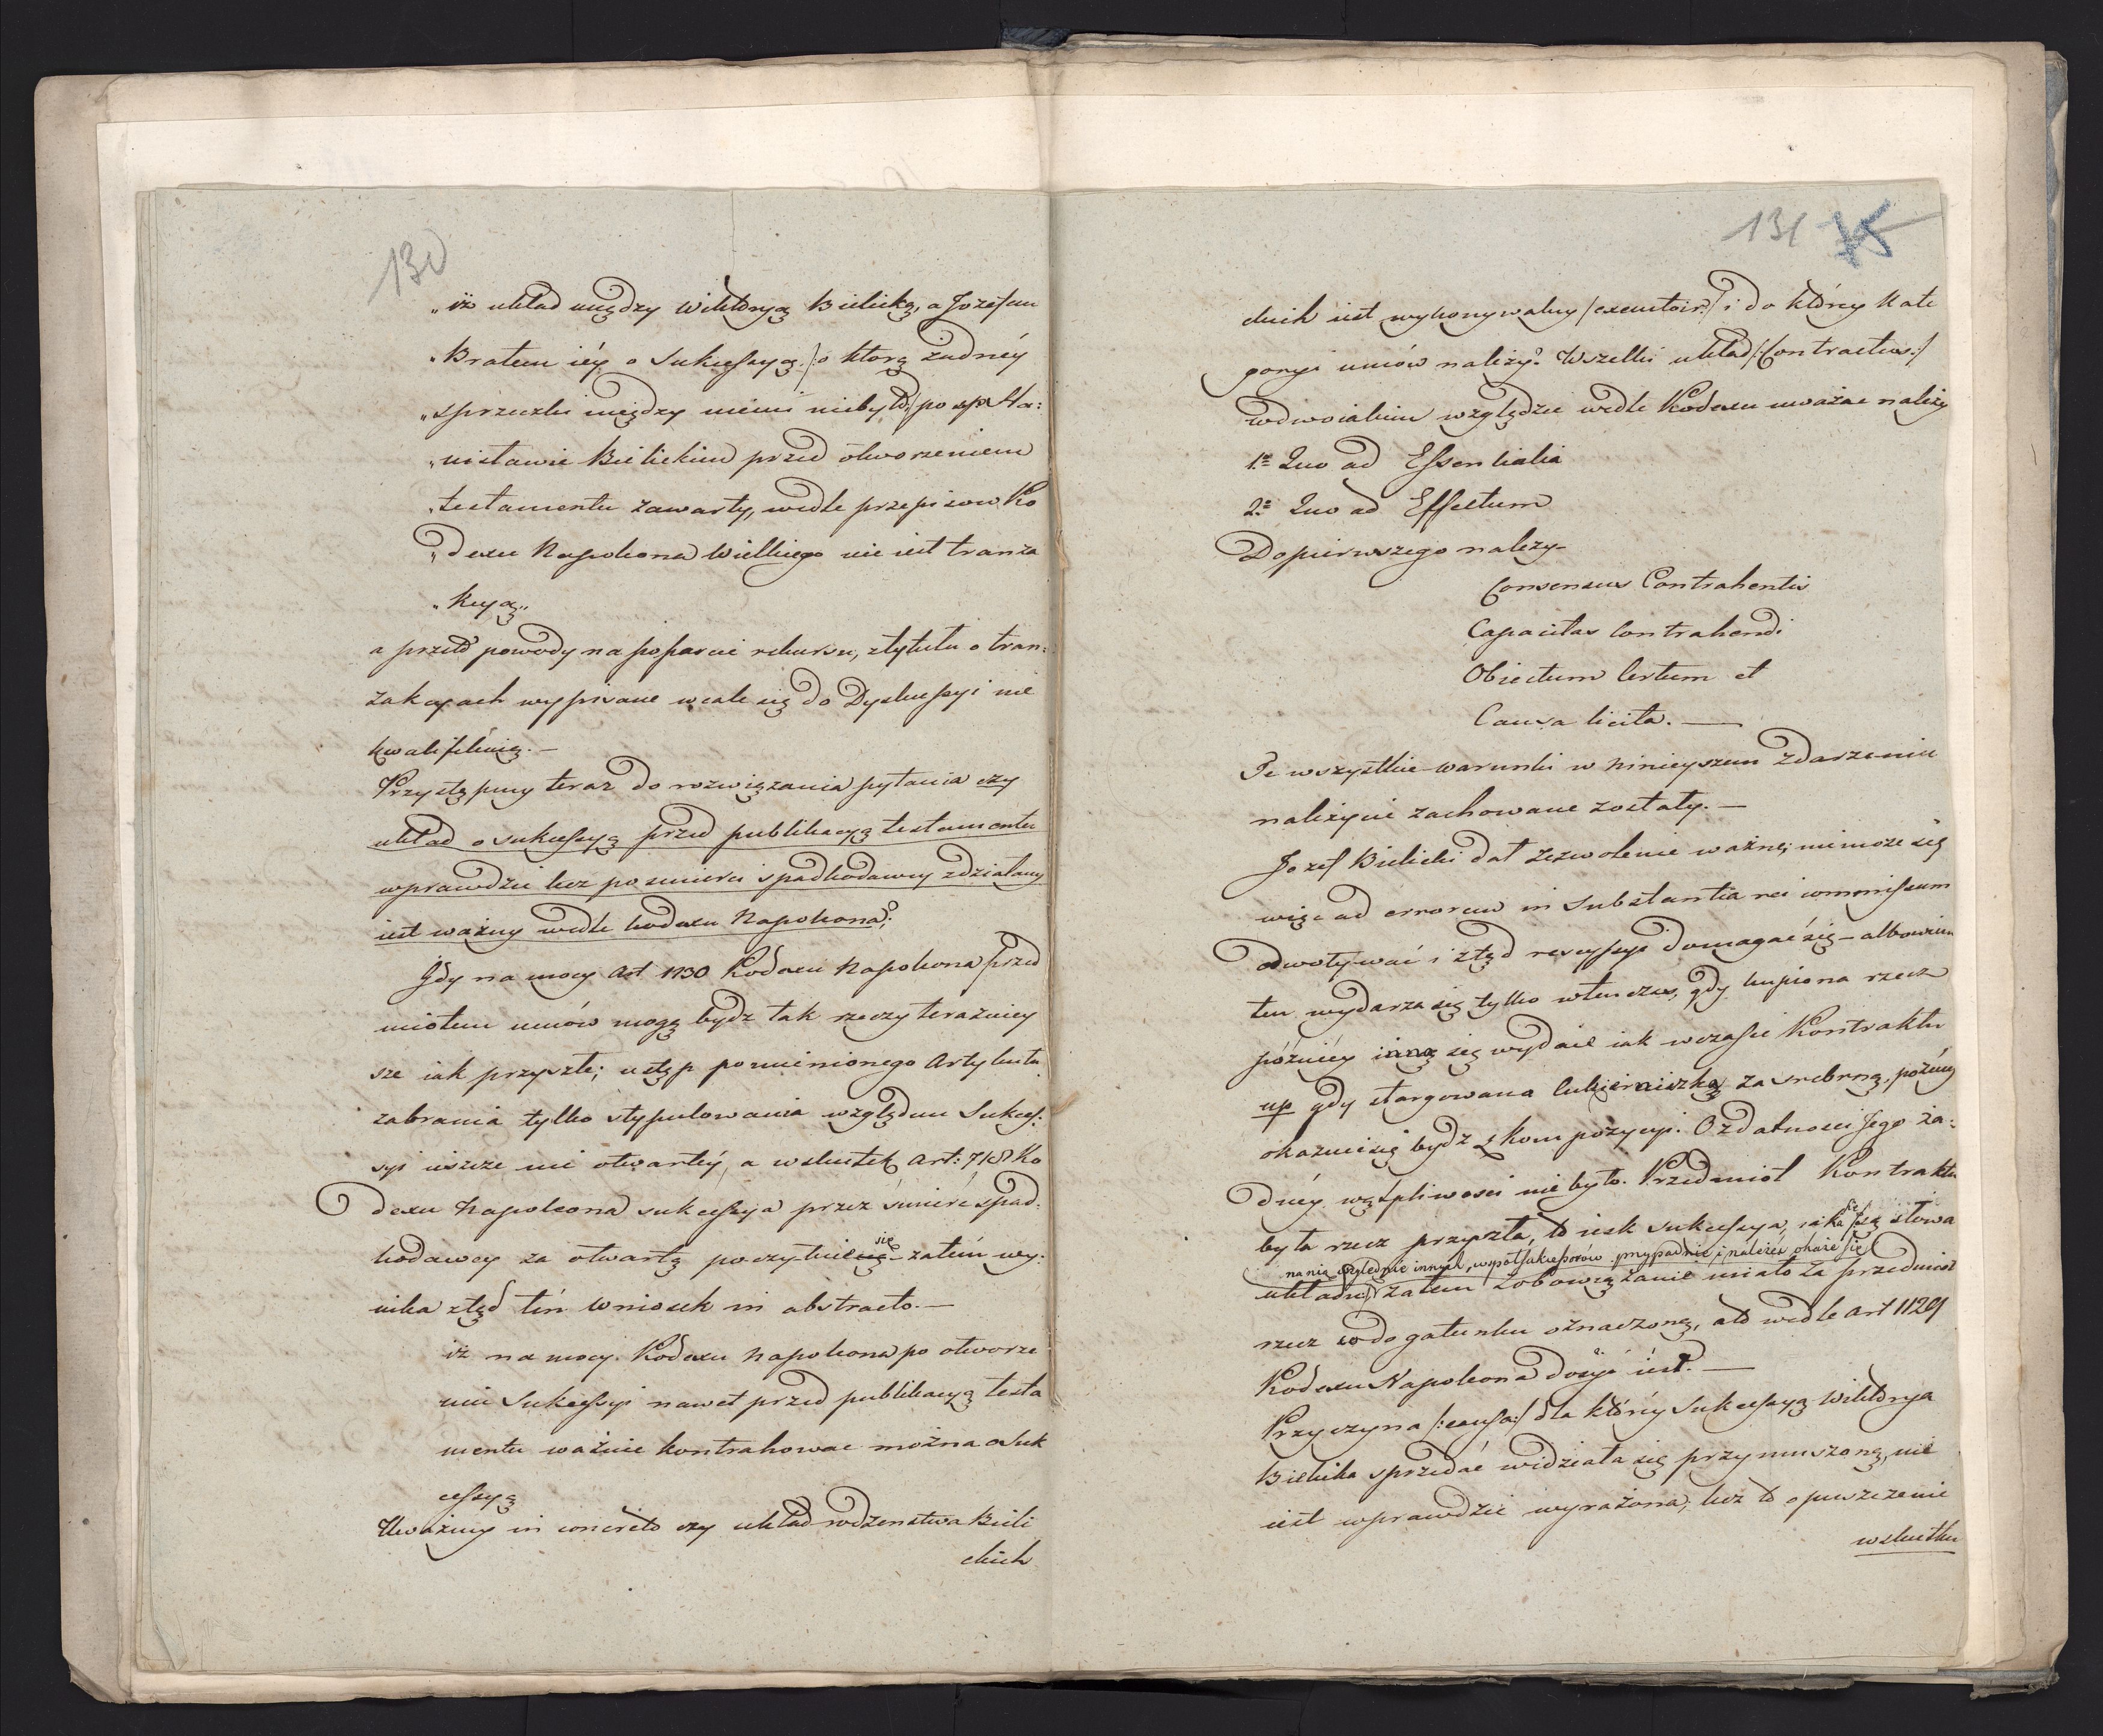 130
„iż układ między Wiktoryą Bielicką, a Jozefem
„Bratem iéy o Sukcessyą /: o ktorą żadnéy
„sprzeczki między niémi niebyło :/ po sp. Sta:
„nisławie Bielickim przed otworzeniem
„testamentu zawarty, wedle przepisow Ko
„dexu Napoleona Wielkiego nie iest tranza
„kcyą„
a przeto powody na poparcie rekursu, z tytułu o tran:
zakcyach wypisane wcale się do Dyskussyi nie
kwalifikuią. —
Przystąpmy teraz do rozwiązania pytania czy
układ o sukcessyą przed publikacyą testamentu
wprawdzie lecz po smierci spadkodawcy zdziałany
iest ważny wedle kodexu Napoleona?;
Gdy na mocy Art 1130 Kodexu Napoleona przed
miotem umów mogą bydz tak rzeczy teraźniey
sze iak przyszłe; ustęp pomienionego Artykułu
zabrania tylko stypulowania względem Sukces:
syi ieszcze nie otwartéy, a wskutek Art: 718 Ko
dexu Napoleona sukcessya przez śmierć spad:
kodawcy za otwartą poczytuie się – zatém wy:
nika ztąd tén wniosek in abstracto. —
iż na mocy Kodexu Napoleona po otworze
niu Sukcessyi nawet przed publikacyą testa
mentu ważnie kontrahowac można o Suk
cessyą
Uważmy in concreto czy układ rodzenstwa Bieli
ckich
131 75
ckich iest wykonywalny /executoir:/ i do któréy Kate
goryi umów należy? Wszelki układ /:Contractus:/
w dwoiakim względzie wedle Kodexu uważac należy
1o Quo ad Essentialia
2o Quo ad Effectum
Do pierwszego należy–
Consensus Contrahentis
Capacitas Contrahendi
Obiectum Certum et
Causa licita. —
Te wszystkie warunki w ninieyszem Zdarzeniu
należycie zachowane zostały. —
Jozef Bielicki dał zezwolenie ważne, niemoże się
więc ad errorem in Substantia rei commissum
odwoływać i ztąd rescyssyi domagać się – albowiem
ten wydarza się tylko wtenczas, gdy kupiona rzecz
późniéy inną się wydaie iak wczasie Kontraktu
up gdy stargowana Cukierniczka za srebrną, późniey
okazuie się bydz z kompozycyi. O zdatnosci Jego ża:
dnéy wątpliwosci nie było. Przedmiot Kontraktu
była rzecz przyszła, to iest sukcessya, iaka się słowa
na nią względnie innych współsukcessorów przypadnie i należéć okaże się
układu, zatem zobowiązanie miało za przedmiot
rzecz co do gatunku oznaczoną, a to wedle Art 1129
Kodexu Napoleona dosyć iest. —
Przyczyna /:causa:/ dla któréy Sukcessyą Wiktorya
Bielicka sprzedać widziała się przymuszoną, nie
iest wprawdzie wyrażona, lecz to opuszczenie
wskutku